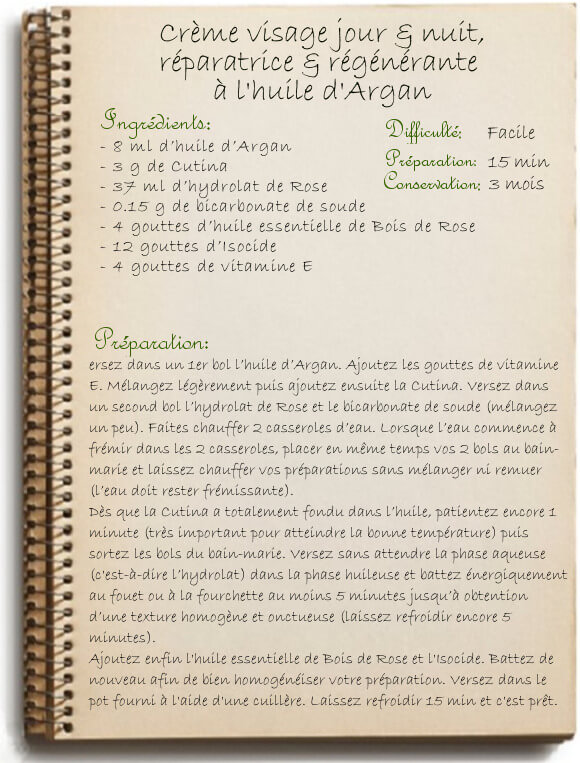 Crème visage jour & nuit,
réparatrice & régénérante
à l'huile d'Argan
Ingrédients:
- 8 ml d'huile d'Argan
- 3 g de Cutina
- 37 ml d'hydrolat de Rose
- 0.15 g de bicarbonate de soude
- 4 gouttes d'huile essentielle de Bois de Rose
- 12 gouttes d'Isocide
- 4 gouttes de vitamine E
Difficulté: Facile
Préparation: 15 min
Conservation: 3 mois
Préparation:
ersez dans un 1er bol l'huile d'Argan. Ajoutez les gouttes de vitamine
E. Mélangez légèrement puis ajoutez ensuite la Cutina. Versez dans
un second bol l'hydrolat de Rose et le bicarbonate de soude (mélangez
un peu). Faites chauffer 2 casseroles d'eau. Lorsque l'eau commence à
frémir dans les 2 casseroles, placer en même temps vos 2 bols au bain-
marie et laissez chauffer vos préparations sans mélanger ni remuer
(l'eau doit rester frémissante).
Dès que la Cutina a totalement fondu dans l'huile, patientez encore 1
minute (très important pour atteindre la bonne température) puis
sortez les bols du bain-marie. Versez sans attendre la phase aqueuse
(c'est-à-dire l'hydrolat) dans la phase huileuse et battez énergiquement
au fouet ou à la fourchette au moins 5 minutes jusqu'à obtention
d'une texture homogène et onctueuse (laissez refroidir encore 5
minutes).
Ajoutez enfin l'huile essentielle de Bois de Rose et l'Isocide. Battez de
nouveau afin de bien homogénéiser votre préparation. Versez dans le
pot fourni à l'aide d'une cuillère. Laissez refroidir 15 min et c'est prêt.